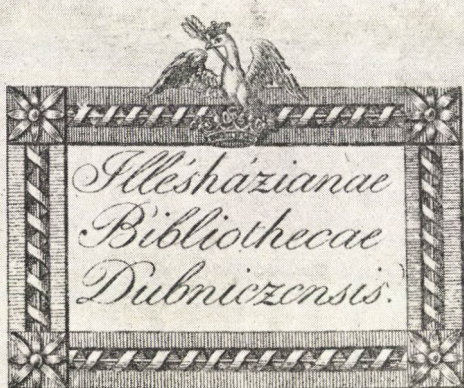 Illésházianae
Bibliothecae
Dubniczensis.